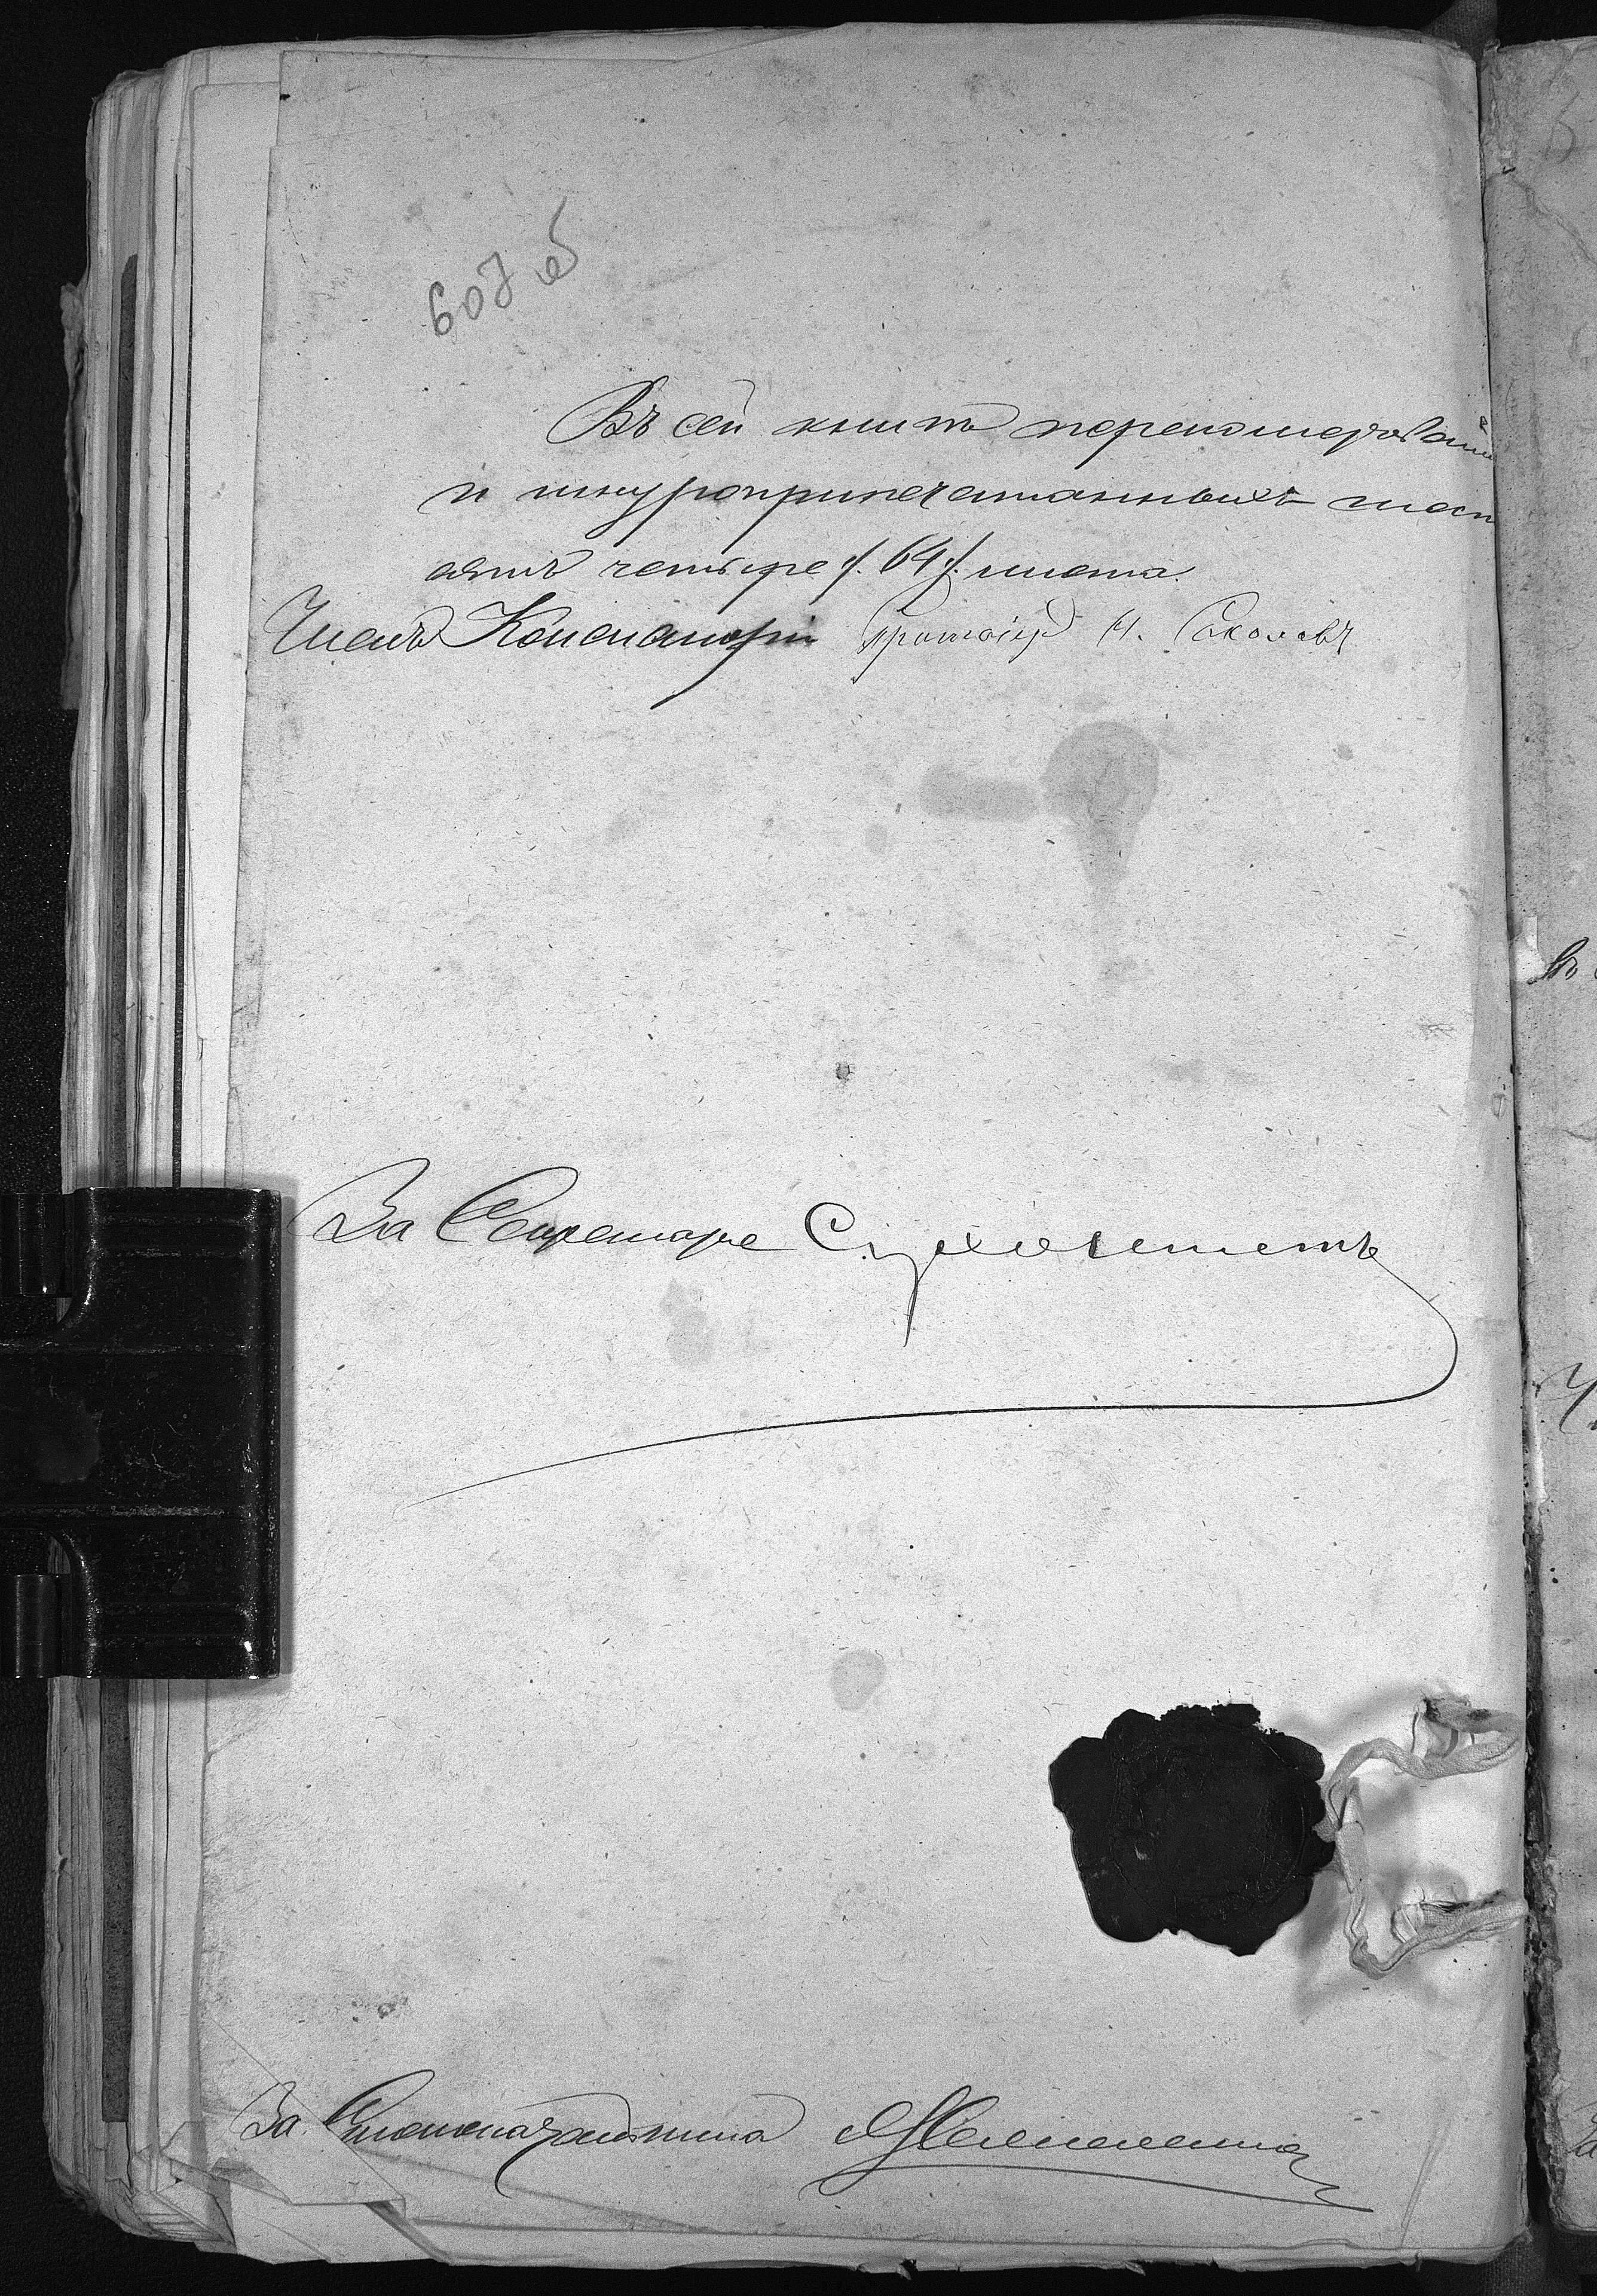 607 об
Въ сей книгѣ перенумерованн
и шнуроприпечатанныхъ шест
десятъ четыре /. 64 /. листа.
Членъ Консисторіи Протоіер. Н. Соколовъ
За Секретаря
За Столоначальника